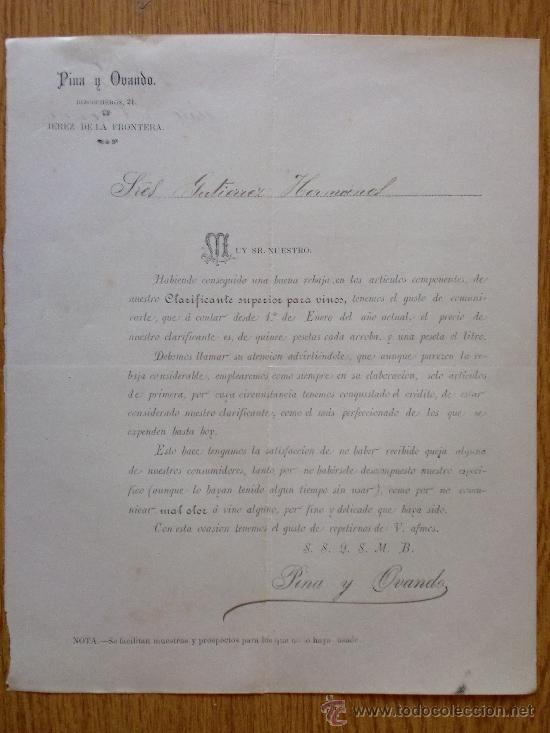 Pina y Ovando.
BIZCOCHEROS, 21.
JEREZ DE LA FRONTERA.
Sres Gutierrez Hermanos
MUY SR. NUESTRO:
Habiendo conseguido una buena rebaja en los artículos componentes, de
nuestro Clarificante superior para vinos, tenemos el gusto de comuni-
carle, que á contar desde 1.º de Enero del año actual, el precio de
nuestro clarificante es, de quince pesetas cada arroba, y una peseta el litro.
Debemos llamar su atencion advirtiéndole, que aunque parezca la re-
baja considerable, emplearemos como siempre en su elaboracion, solo artículos
de primera, por cuya circunstancia tenemos conquistado el crédito, de estar
considerado nuestro clarificante, como el más perfeccionado de los que se
expenden hasta hoy.
Esto hace tengamos la satisfaccion de no haber recibido queja alguna
de nuestros consumidores, tanto por no habérsele descompuesto nuestro especí-
fico (aunque lo hayan tenido algun tiempo sin usar), como por no comu-
nicar mal olor á vino alguno, por fino y delicado que haya sido.
Con esta ocasion tenemos el gusto de repetirnos de V. afmos.
S. S. Q. S. M. B.
Pina y Ovando
NOTA.—Se facilitan muestras y prospectos para los que no lo haya usado.
www.todocoleccion.net